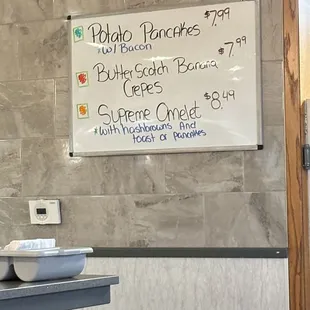 Potato Pancakes $7.99
*w/ Bacon
ButterScotch Banana $7.99
Crepes
Supreme Omelet $8.49
*with hashbrowns And
toast or pancakes